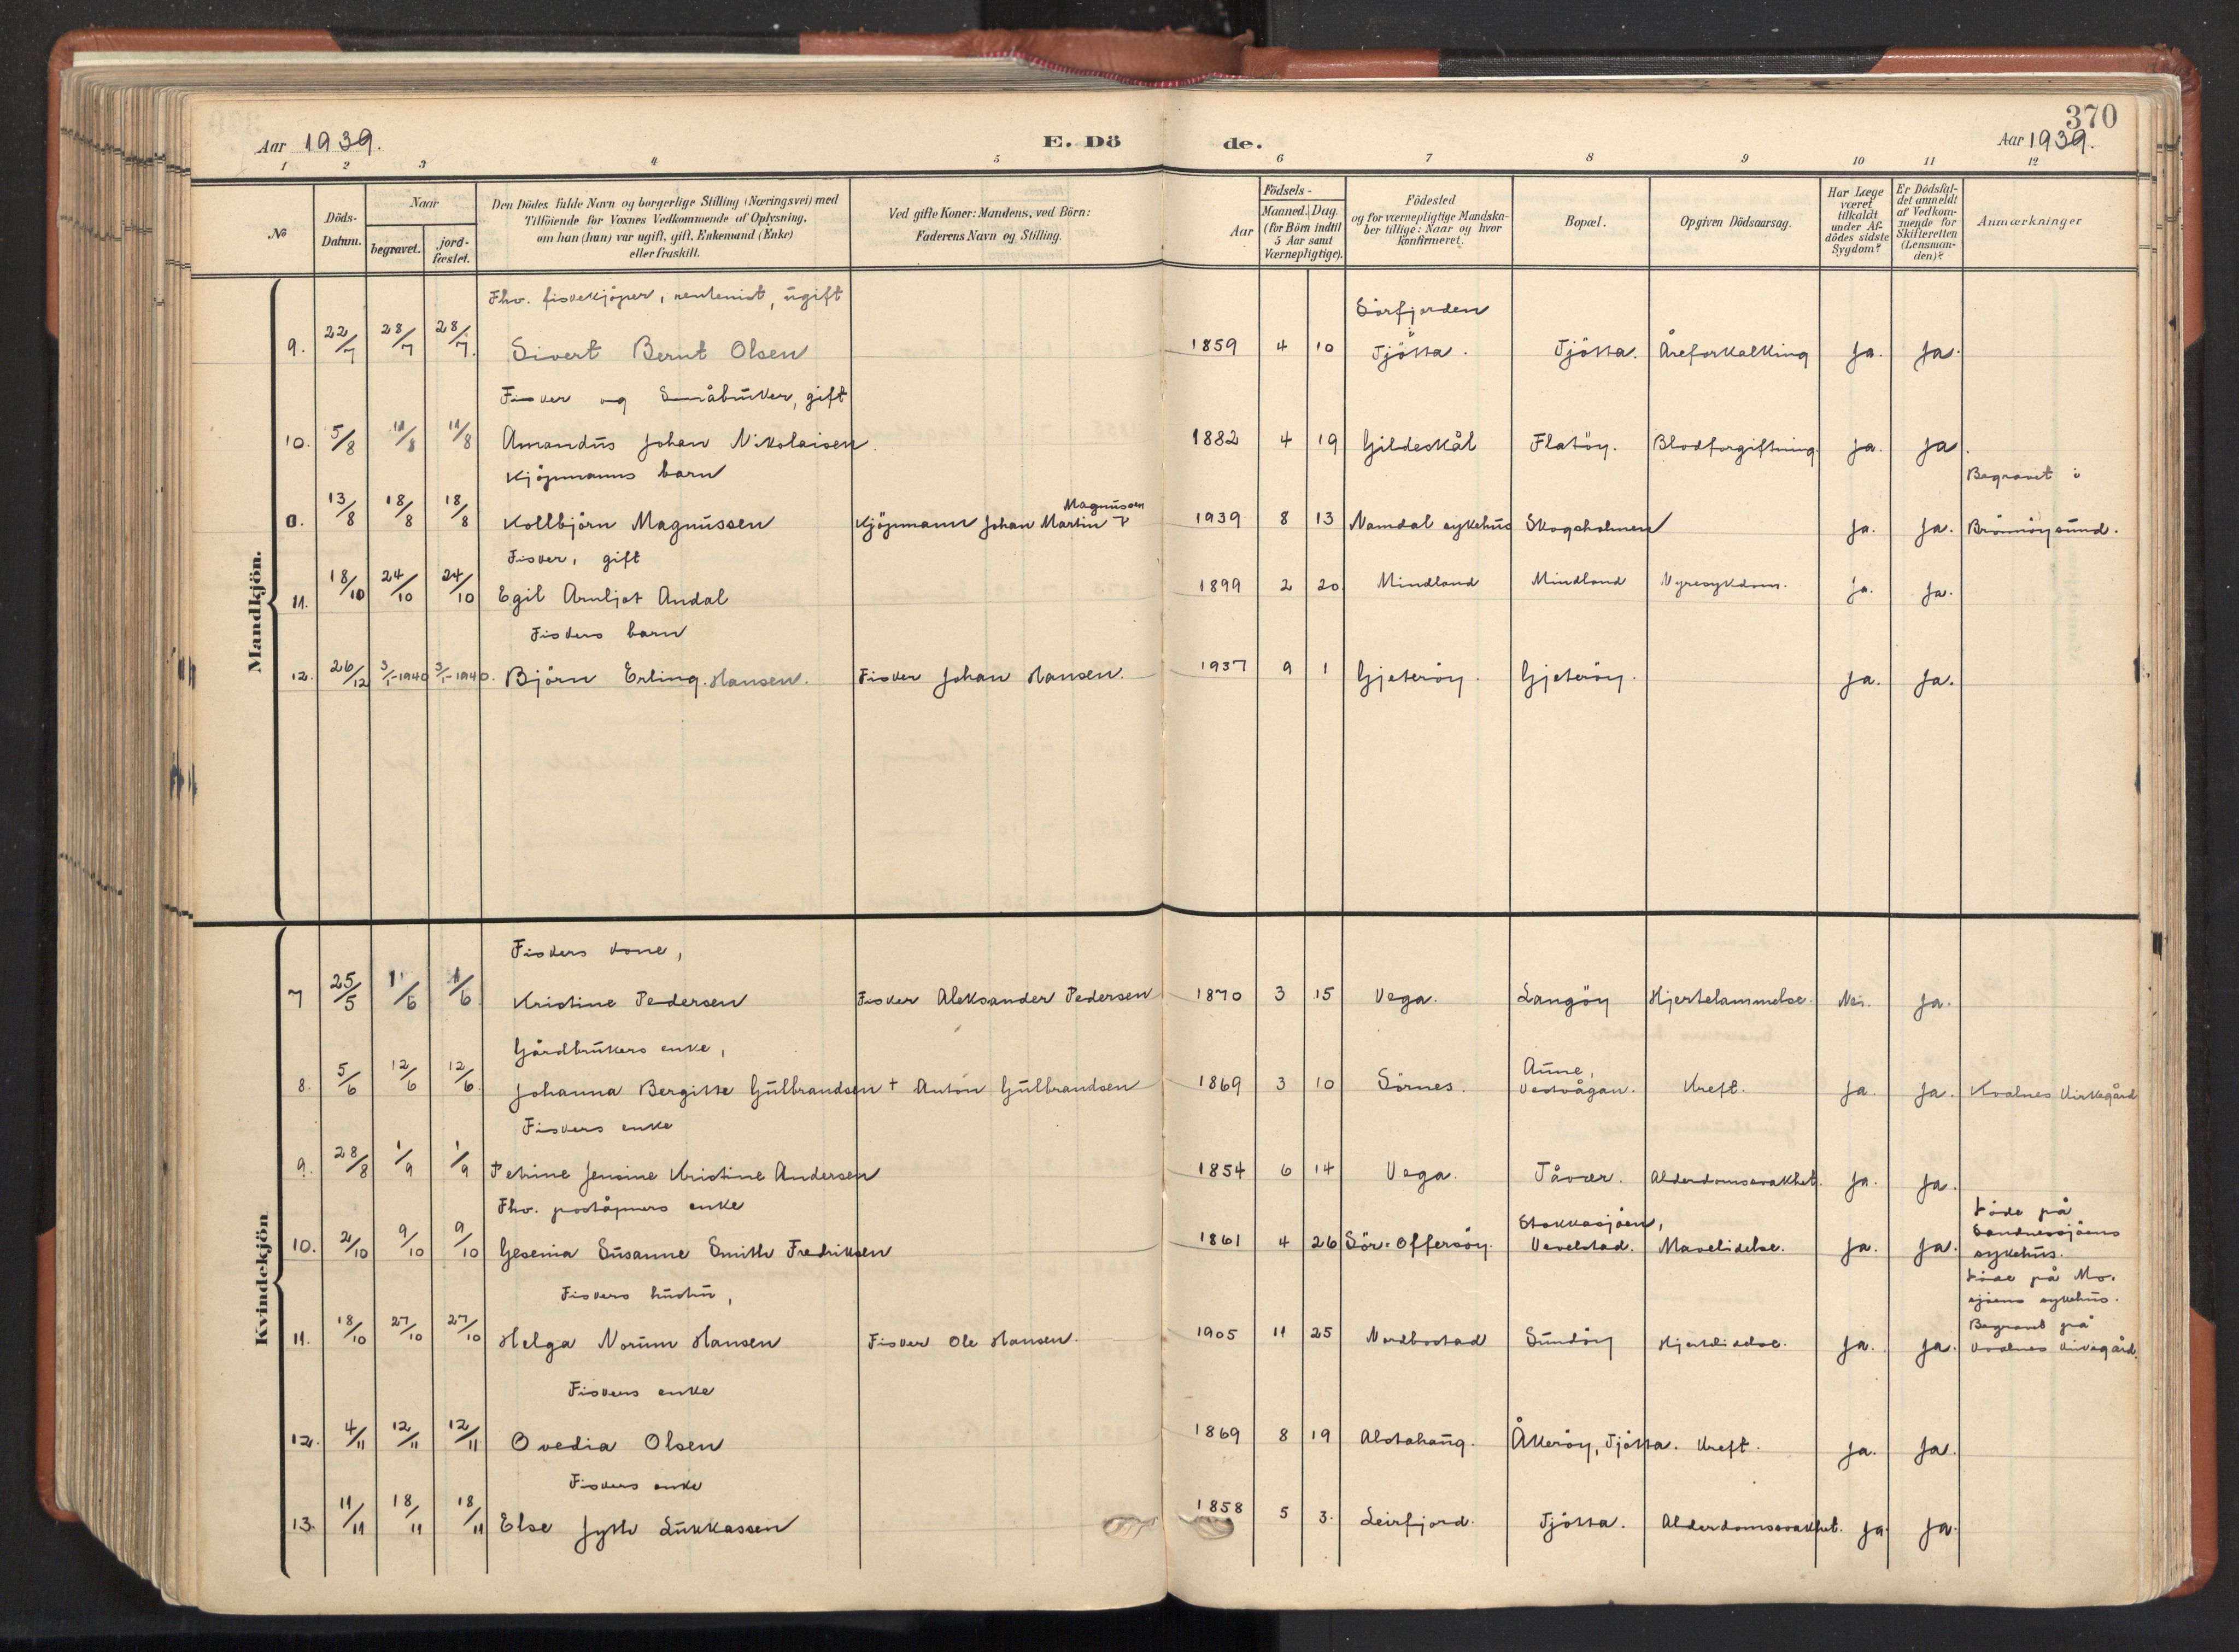 370
Aar 1939.
E. Dö
de.
Aar 1939.
1 2 3 4 5 6 7 8 9 10 11 12
No
Döds-
Datum.
Naar
begravet.
jord-
fæstet.
Den Dödes fulde Navn og borgerlige Stilling (Næringsvei) med
Tilföiende for Voxnes Vedkommende af Oplysning,
om han (hun) var ugift, gift, Enkemand (Enke)
eller fraskilt.
Ved gifte Koner: Mandens, ved Börn:
Faderens Navn og Stilling.
Födsels-
Aar
Maaned. Dag
(for Börn indtil
5 Aar samt
Værnepligtige).
Födested
og for værnepligtige Mandska-
ber tillige: Naar og hvor
konfirmeret.
Bopæl.
Opgiven Dödsaarsag.
Har Læge
været
tilkaldt
under Af-
dödes sidste
Sygdom?
Er Dödsfal-
det anmeldt
af Vedkom-
mende for
Skifteretten
(Lensman-
den)?
Anmærkninger
Mandkjön.
Fhv. fiskekjöper, rentenist, ugift
Sörfjorden
9. 22/7 28/7 28/7. Sivert Bernt Olsen 1859 4 10 Tjötta. Tjötta. Åreforkalking Ja. Ja.
Fisker og Småbruker, gift
10. 5/8 11/8 11/8 Amandus Johan Nikolaisen. 1882 4 19 Gildeskål Flatöy. Blodforgiftning. Ja. Ja.
Kjöpmanns barn
Magnussen
Begravet i
0. 13/8 18/8 18/8 Kollbjörn Magnussen Kjöpmann Johan Martin 1939 8 13 Namdal sykehus Skogsholmen Ja. Ja. Brönnöysund.
Fisker, gift
11. 18/10 24/10 24/10 Egil Arnljot Andal 1899 2 20. Mindland Mindland Nyresykdom. Ja. Ja.
Fiskers barn
12. 26/12 3/1-1940 3/1-1940. Björn Erling Hansen. Fisker Johan Hansen. 1937 9 1 Gjeteröy. Gjeteröy. Ja. Ja.
Kvindekjön
Fiskers kone,
7 25/5 1/6 1/6 Kristine Pedersen Fisker Aleksander Pedersen 1870 3 15 Vega. Langöy Hjertelammelse. Nei. Ja.
Gårdbrukers enke,
Aune,
8. 5/6 12/6 12/6. Johanna Bergitte Gulbrandsen + Anton Gulbrandsen 1869 3 10 Sörnes. Vestvågan. Kreft. Ja. Ja. Kvalnes kirkegård
Fiskers enke
9. 28/8 1/9 1/9 Petrine Jensine Kristine Andersen 1854 6 14 Vega. Tåvær. Alderdomssvakhet. Ja. Ja.
Fhv. poståpners enke
Stokkasjöen,
Döde på
Sandnessjöens
sykehus.
10. 2/10 9/10 9/10 Gesenia Susanne Smith Fredriksen 1861 4 26 Sör-Offersöy. Vevelstad. Mavelidelse. Ja. Ja.
Fiskers hustru,
Döde på Mo-
sjöens sykehus.
Begravet på
Kvalnes kirkegård.
11. 18/10 27/10 27/10 Helga Norum Hansen Fisker Ole Hansen. 1905 11 25 Nordbostad Sundöy Hjertelidelse. Ja. Ja.
Fiskers enke
12. 4/11 12/11 12/11 Ovedia Olsen 1869 8 19 Alstahaug. Åkeröy, Tjötta. Kreft. Ja. Ja.
Fiskers enke
13. 11/11 18/11 18/11 Else Jytth Lukkassen 1858 5 3. Leirfjord. Tjötta. Alderdomssvakhet. Ja. Ja.